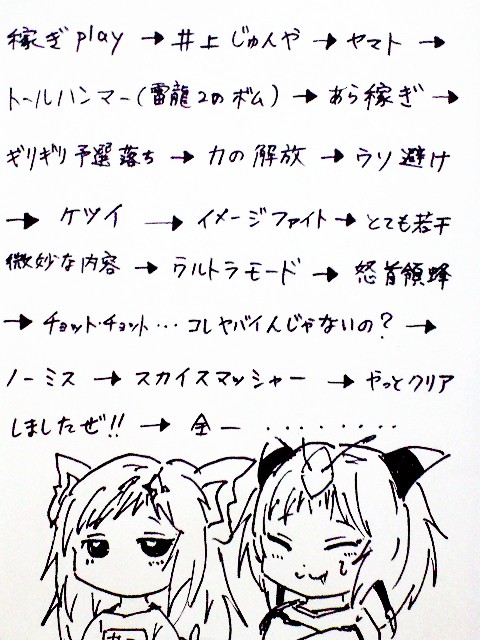 稼ぎplay → 井上じゅんや → ヤマト →
トールハンマー(雷龍2のボム) → あら稼ぎ →
ギリギリ予選落ち → 力の解放 → ウソ避け
→ ケツイ → イメージファイト → とても若干
微妙な内容 → ウルトラモード → 怒首領蜂
→ チョット・チョット…コレヤバイんじゃないの? →
ノーミス → スカイスマッシャー → やっとクリア
しましたぜ!! → 全一 ・・・・・・・・・